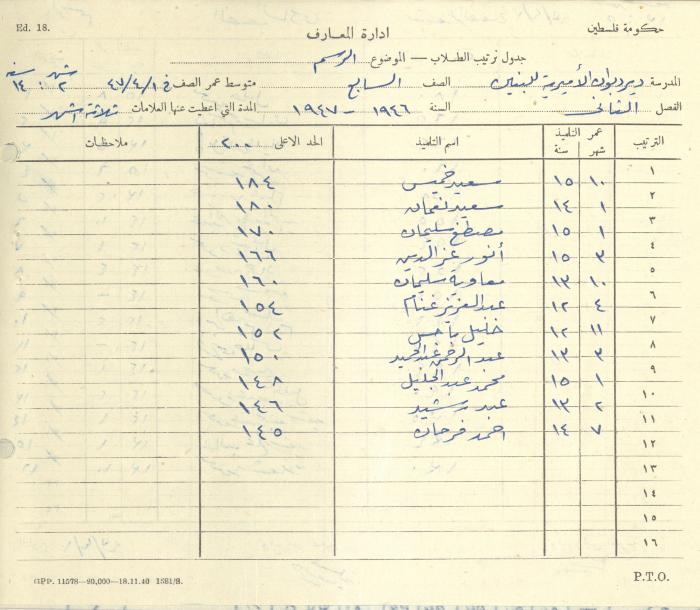 Ed. 18.
حكومة فلسطين
ادارة المعارف
جدول ترتيب الطلاب — الموضوع الرسم
المدرسة ديرديوان الأميرية للبنين الصف السابع متوسط عمر الصف في ٤٧/٤/١ شهر ٢ : سنة ١٤
الفصل الثاني السنة ١٩٤٦ - ١٩٤٧ المدة التي اعطيت عنها العلامات ثلاثة اشهر
الترتيب عمر التلميذ شهر سنة اسم التلميذ الحد الاعلى ٢٠٠ ملاحظات
١ ١٠ ١٥ سعيد خميس ١٨٤
٢ ١ ١٤ سعيد نعمان ١٨٠
٣ ١ ١٥ مصطفى سليمان ١٧٠
٤ ٣ ١٥ أنور عز الدين ١٦٦
٥ ١٠ ١٣ معاوية سليمان ١٦٠
٦ ٤ ١٢ عبد العزيز غنام ١٥٤
٧ ١١ ١٢ خليل ياسين ١٥٢
٨ ٣ ١٣ عبد الرحمن عبد الحميد ١٥٠
٩ ١ ١٥ محمد عبد الجليل ١٤٨
١٠ ٢ ١٣ عبد رشيد ١٤٦
١١ ٧ ١٤ احمد فرحان ١٤٥
١٢
١٣
١٤
١٥
١٦
GPP. 11578—90,000—18.11.40 1581/S.
P.T.O.